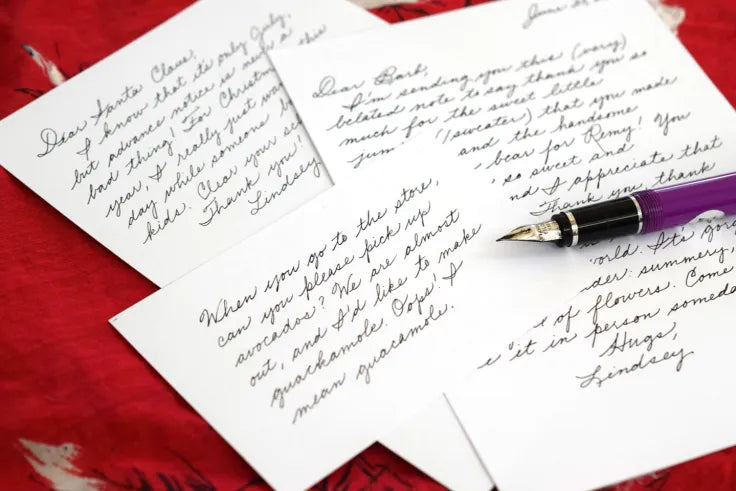 Dear Santa Claus,
I know that it's only July,
but advance notice is never a
bad thing! For Christmas this
year, I really just want a
day while someone
kids. Clear your
Thank you!
Lindsey
Dear Barb,
I'm sending you this (very)
belated note to say thank you so
much for the sweet little
(sweater) that you made
and the handsome
bear for Remy! You
so sweet and
and I appreciate that
Thank you, thank
world. It's
summery,
of flowers. Come
it in person
Hugs,
Lindsey
When you go to the store,
can you please pick up
avocados? We are almost
out, and I'd like to make
guackamole. Oops! I
mean guacamole.